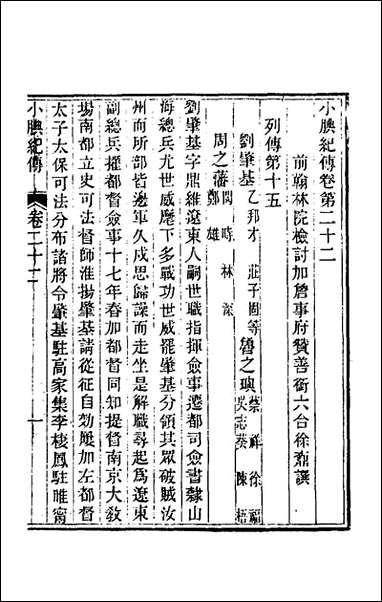 小腆紀傳卷第二十二
前翰林院檢討加詹事府贊善銜六合徐鼒譔
列傳第十五
劉肇基 乙邦才 莊子固等 魯之璵 蔡祥 徐福 吳志葵 陳梧
周之藩 閔時 林深 鄭雄
劉肇基字鼎維遼東人嗣世職指揮僉事遷都司僉書隸山
海總兵尤世威麾下多戰功世威罷肇基分領其眾破賊汝
州而所部皆邊軍久戍思歸譟而走坐是解職尋起爲遼東
副總兵擢都督僉事十七年春加都督同知提督南京大敎
場南都立史可法督師淮揚肇基請從征自効屢加左都督
太子太保可法分布諸將令肇基駐高家集李棲鳳駐睢甯
小腆紀傳 卷二十二 一